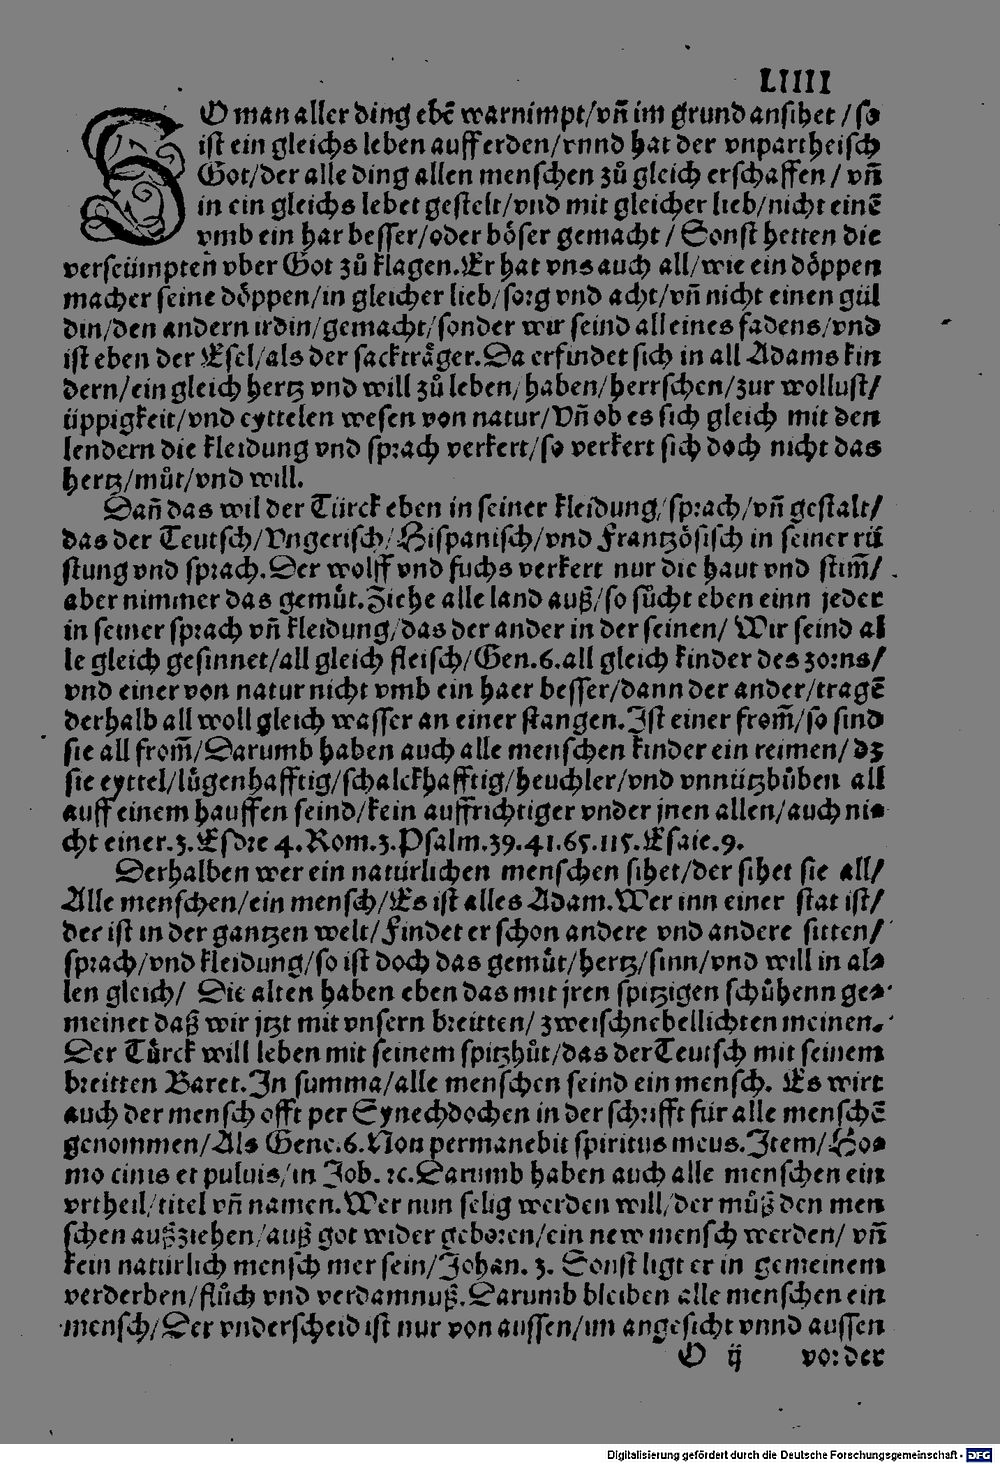 LIIII
SO man aller ding ebē warnimpt/vñ im grund ansihet/so
ist ein gleichs leben auff erden/vnnd hat der vnpartheisch
Got/der alle ding allen menschen zů gleich erschaffen/vñ
in ein gleichs lebet gestelt/vnd mit gleicher lieb/nicht einē
vmb ein har besser/oder böser gemacht/Sonst hetten die
verseümpten vber Got zů klagen.Er hat vns auch all/wie ein döppen
macher seine döppen/in gleicher lieb/sorg vnd acht/vñ nicht einen gül
din/den andern irdin/gemacht/sonder wir seind all eines fadens/vnd
ist eben der Esel/als der sackträger.Da erfindet sich in all Adams kin
dern/ein gleich hertz vnd will zů leben/haben/herrschen/zur wollust/
üppigkeit/vnd eyttelen wesen von natur/Vñ ob es sich gleich mit den
lendern die kleidung vnd sprach verkert/so verkert sich doch nicht das
hertz/můt/vnd will.
Dañ das wil der Türck eben in seiner kleidung/sprach/vñ gestalt/
das der Teutsch/Vngerisch/Hispanisch/vnd Frantzösisch in seiner rü
stung vnd sprach.Der wolff vnd fuchs verkert nur die haut vnd stim̄/
aber nimmer das gemüt.Ziehe alle land auß/so sücht eben einn jeder
in seiner sprach vñ kleidung/das der ander in der seinen/Wir seind al
le gleich gesinnet/all gleich fleisch/Gen.6.all gleich kinder des zorns/
vnd einer von natur nicht vmb ein haer besser/dann der ander/tragē
derhalb all woll gleich wasser an einer stangen.Ist einer from̄/so sind
sie all from̄/Darumb haben auch alle menschen kinder ein reimen/dz
sie eyttel/lügenhafftig/schalckhafftig/heuchler/vnd vnnützbůben all
auff einem hauffen seind/kein auffrichtiger vnder jnen allen/auch ni=
cht einer.3.Esdre 4.Rom.3.Psalm.39.41.65.115.Esaie.9.
Derhalben wer ein natürlichen menschen sihet/der sihet sie all/
Alle menschen/ein mensch/Es ist alles Adam.Wer inn einer stat ist/
der ist in der gantzen welt/Findet er schon andere vnd andere sitten/
sprach/vnd kleidung/so ist doch das gemüt/hertz/sinn/vnd will in al=
len gleich/ Die alten haben eben das mit jren spitzigen schůhenn ge=
meinet daß wir jtzt mit vnsern breitten/zweischnebellichten meinen.
Der Türck will leben mit seinem spitzhůt/das der Teutsch mit seinem
breitten Baret.In summa/alle menschen seind ein mensch. Es wirt
auch der mensch offt per Synechdochen in der schrifft für alle menschē
genommen/Als Gene.6.Non permanebit spiritus meus.Item/Ho=
mo cinis et puluis/in Job.ꝛc.Darumb haben auch alle menschen ein
vrtheil/titel vñ namen.Wer nun selig werden will/der můß den men
schen außziehen/auß got wider geboren/ein new mensch werden/vñ
kein natürlich mensch mer sein/Johan.3. Sonst ligt er in gemeinem
verderben/flůch vnd verdamnuß.Darumb bleiben alle menschen ein
mensch/Der vnderscheid ist nur von aussen/im angesicht vnnd aussen
O ij vor der
Digitalisierung gefördert durch die Deutsche Forschungsgemeinschaft - DFG